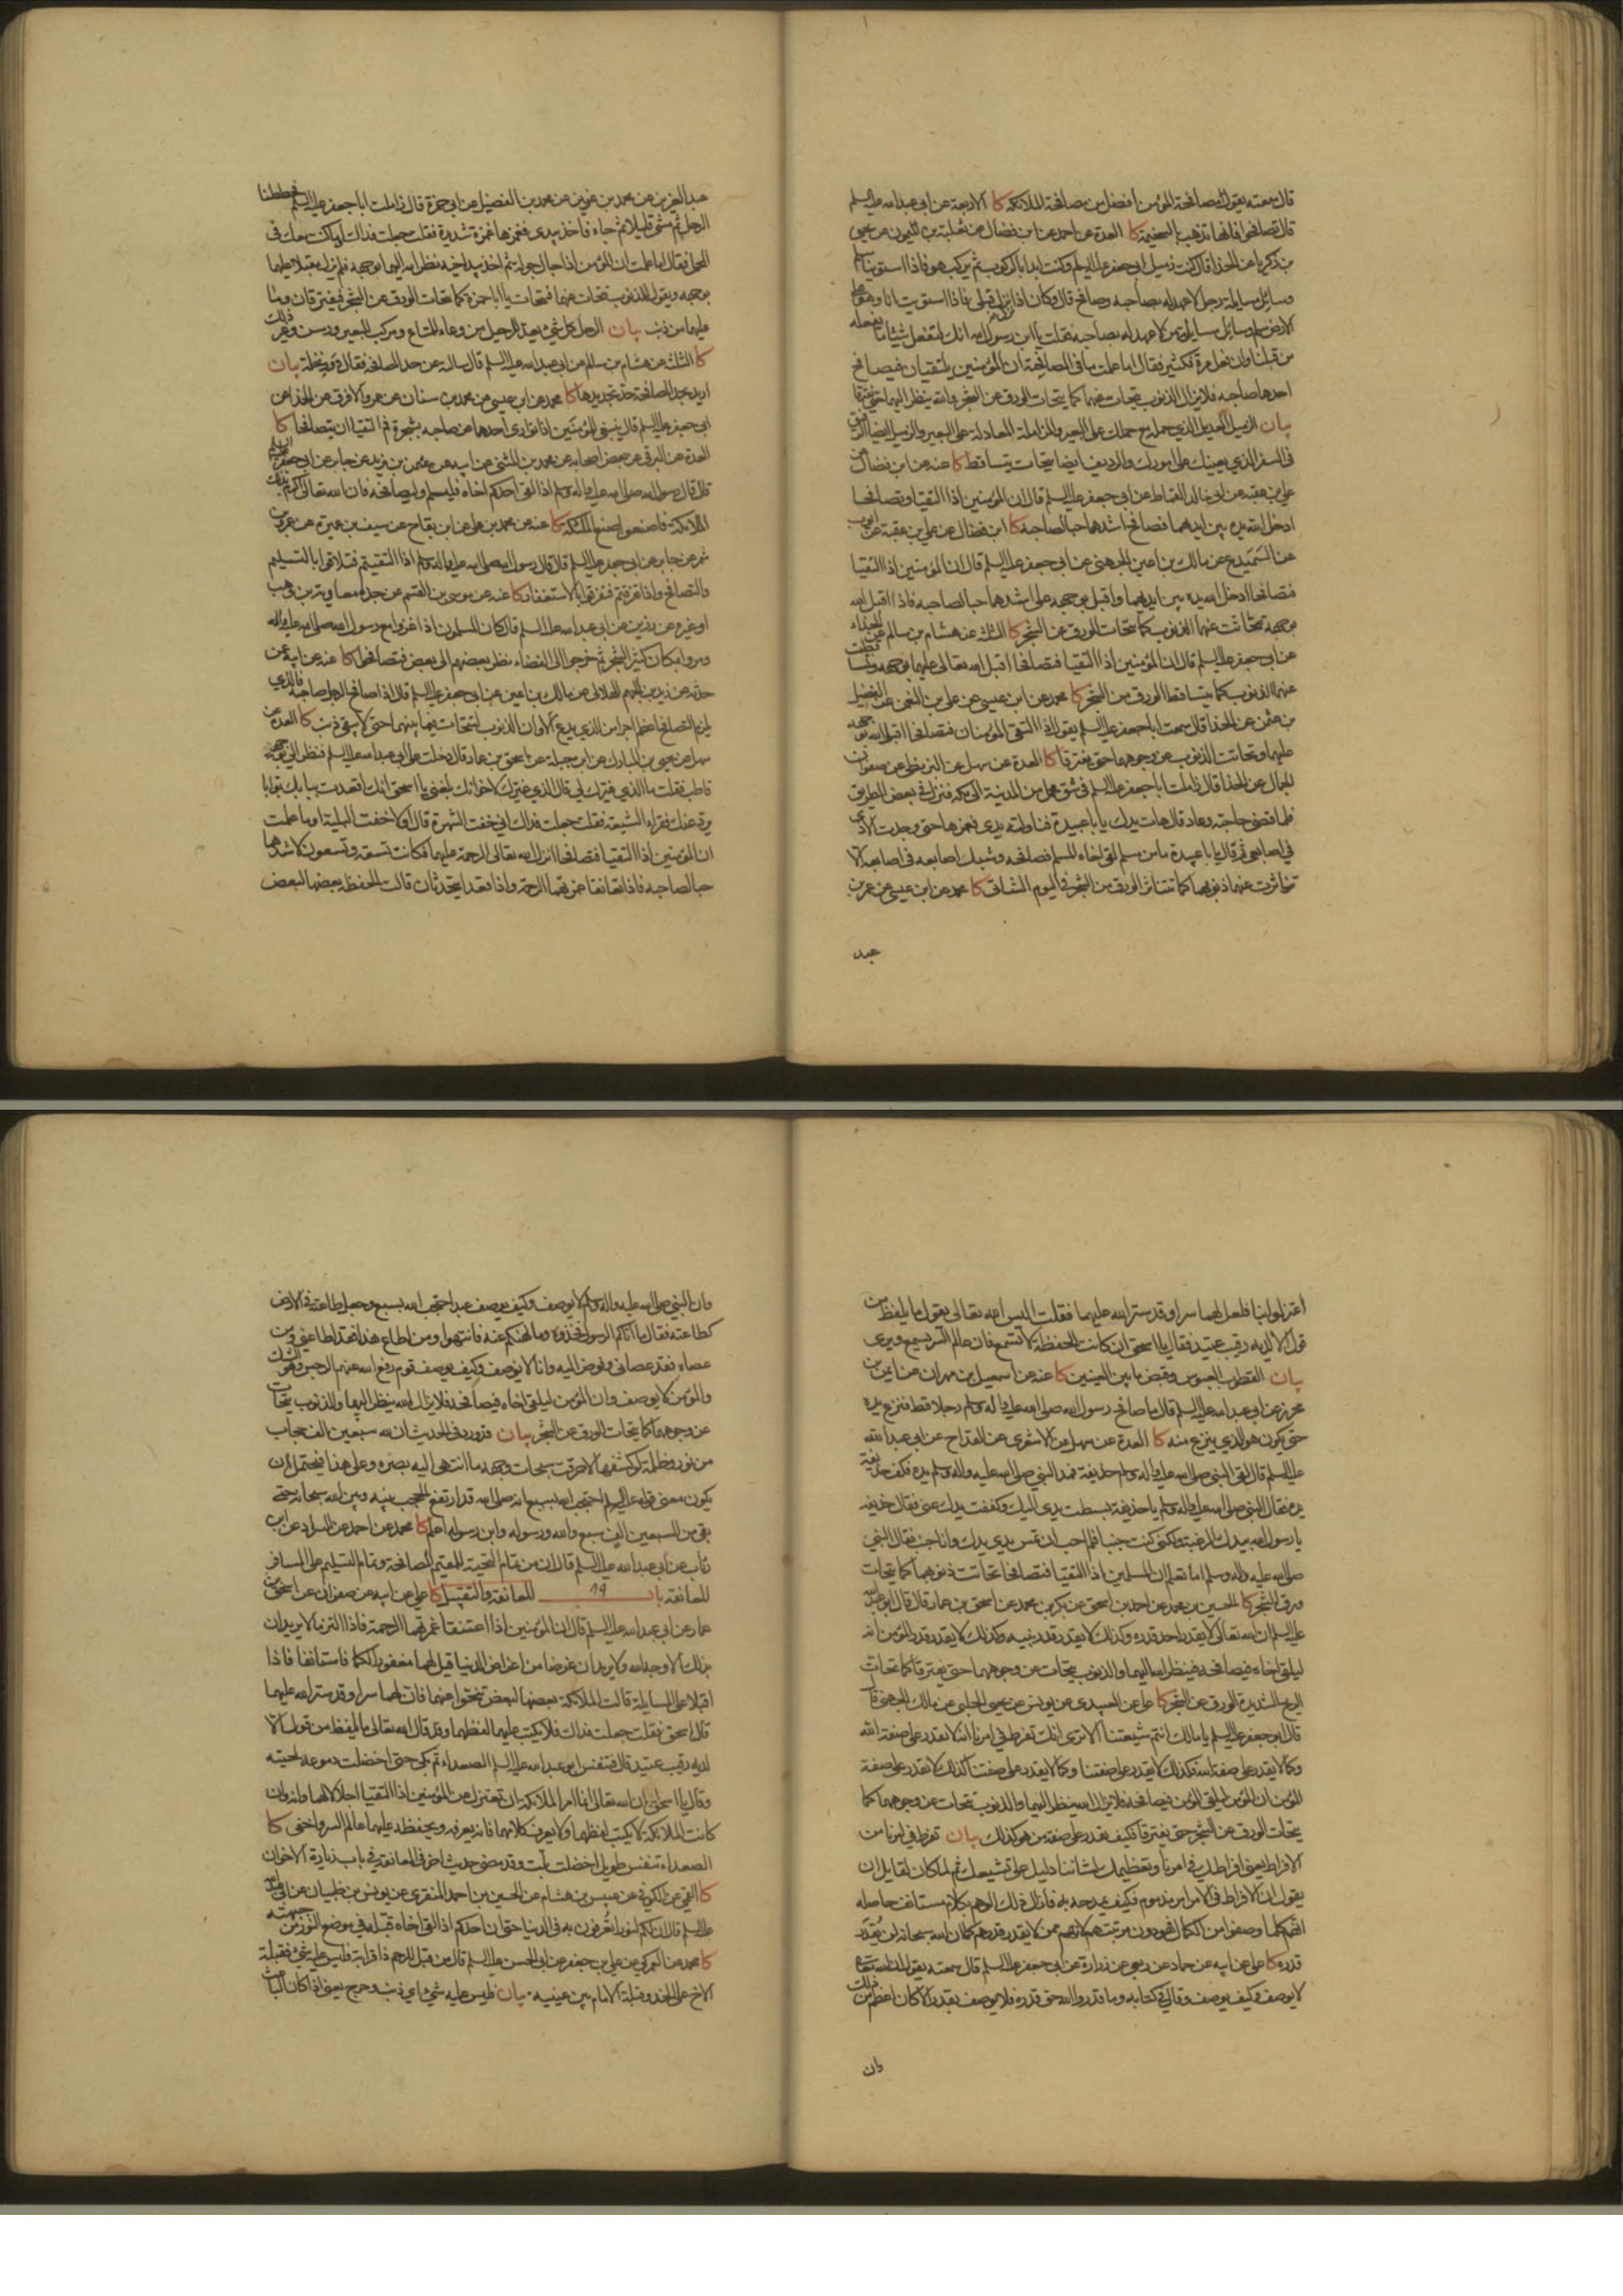 قال سمعته يقول مصافحة المؤمن افضل من مصافحة الملائكة كا الاربعة عن ابي عبد الله عليه السلم
قال تصافحوا فانها تذهب بالسخيمة كا العدة عن احمد عن ابن فضال عن ثعلبة بن ميمون عن يحيى
بن زكريا عن الحذا قال كنت زميل ابي جعفر عليه السلم وكنت ابدا بالركوب ثم يركب هو فاذا استوينا سلم
وسائل مسايلة رجل لا عهد له بصاحبه وصافح قال وكان اذا نزل نزل قبلي فاذا استويت انا وهو على
الارض سلم وسائل مسايلة من لا عهد له بصاحبه فقلت يا ابن رسول الله انك لتفعل شيئا ما يفعله
من قبلنا وان فعل مرة فكثير فقال اما علمت ما في المصافحة ان المؤمنين يلتقيان فيصافح
احدهما صاحبه فلا يزال الذنوب تتحات عنهما كما يتحات الورق عن الشجر والله ينظر اليهما حتى يفترقا
بيان الزميل العديل الذي حمله مع حملك على البعير والمزاملة المعادلة على البعير والزميل ايضا الرفيق
في السفر الذي يعينك على امورك والرديف ايضا يتحات يتساقط كا عنه عن ابن فضال عن
علي بن عقبة عن ابي خالد القماط عن ابي جعفر عليه السلم قال ان المؤمنين اذا التقيا وتصافحا
ادخل الله يده بين ايديهما فصافح اشدهما حبا لصاحبه كا ابن فضال عن علي بن عقبة عن ايوب
عن السميدع عن مالك بن اعين الجهني عن ابي جعفر عليه السلم قال ان المؤمنين اذا التقيا
فتصافحا ادخل الله يده بين ايديهما واقبل بوجهه على اشدهما حبا لصاحبه فاذا اقبل الله
بوجهه تحاتت عنهما الذنوب كما يتحات الورق عن الشجر كا الثلثة عن هشام بن سالم عن الحذاء
عن ابي جعفر عليه السلم قال ان المؤمنين اذا التقيا فتصافحا اقبل الله تعالى عليهما بوجهه وتساقطت
عنهما الذنوب كما يتساقط الورق من الشجر كا محمد عن ابن عيسى عن علي بن النعمن عن الفضيل
بن عثمن عن الحذا قال سمعت ابا جعفر عليه السلم يقول اذا التقى المؤمنان فتصافحا اقبل الله بوجهه
عليهما وتحاتت الذنوب عن وجوههما حتى يفترقا كا العدة عن سهل عن البزنطي عن صفوان
الجمال عن الحذا قال زاملت ابا جعفر عليه السلم في شق محمل من المدينة الى مكة فنزل في بعض الطريق
فلما قضى حاجته وعاد قال هات يدك يا ابا عبيدة فناولته يدي فغمزها حتى وجدت الاذى
في اصابعي ثم قال يا ابا عبيدة ما من مسلم لقى اخاه المسلم فصافحه وشبك اصابعه في اصابعه الا
تناثرت عنهما ذنوبهما كما تتناثر الورق من الشجر في اليوم الشاتي كا محمد عن ابن عيسى عن عمر بن
عبد
عبد العزيز عن محمد بن عن محمد بن الفضيل عن ابي حمزة قال زاملت ابا جعفر عليه السلم فحططنا
الرحل ثم مشى قليلا ثم جاء فاخذ بيدي فغمزها غمزة شديدة فقلت جعلت فداك اوما كنت معك في
المحمل فقال اما علمت ان المؤمن اذا جال جولة ثم اخذ بيد اخيه نظر الله اليهما بوجهه فلم يزل مقبلا عليهما
بوجهه ويقول للذنوب تتحات عنهما فتتحات يا ابا حمزة كما تتحات الورق عن الشجر فيفترقان وما
عليهما من ذنب بيان الرحل كل شيء يعد للرحيل من وعاء للمتاع ومركب للبعير ورسن وغير ذلك
كا الثلثة عن هشام بن سالم عن ابي عبد الله عليه السلم قال سالته عن حد المصافحة فقال دور نخلة بيان
اريد بحد المصافحة حد تجديدها كا محمد عن ابن عيسى عن محمد بن سنان عن عمرو الافرق عن الحذا عن
ابي جعفر عليه السلم قال ينبغي للمؤمنين اذا توارى احدهما عن صاحبه بشجرة ثم التقيا ان يتصافحا كا
العدة عن البرقي عن بعض اصحابه عن محمد بن المثنى عن ابيه عن عثمن بن زيد عن جابر عن ابي جعفر عليه السلم
قال قال رسول الله صلى الله عليه واله وسلم اذا لقى احدكم اخاه فليسلم وليصافحه فان الله تعالى اكرم بذلك
الملائكة فاصنعوا صنع الملئكة كا عنه عن محمد بن علي عن ابن بقاح عن سيف بن عميرة عن عمرو بن
شمر عن جابر عن ابي جعفر عليه السلم قال قال رسول الله صلى الله عليه واله وسلم اذا التقيتم فتلاقوا بالتسليم
والتصافح واذا تفرقتم فتفرقوا بالاستغفار كا عنه عن موسى بن القسم عن جده معاوية بن وهب
او غيره عن رزين عن ابي عبد الله عليه السلم قال كان المسلمون اذا غزوا مع رسول الله صلى الله عليه واله
ومروا بمكان كثير الشجر ثم خرجوا الى الفضاء نظر بعضهم الى بعض فتصافحوا كا عنه عن ابيه عمن
حدثه عن زيد بن الجهم الهلالي عن مالك بن اعين عن ابي جعفر عليه السلم قال اذا صافح الرجل صاحبه فالذي
يلزم التصافح اعظم اجرا من الذي يدع الا وان الذنوب لتتحات فيما بينهما حتى لا يبقى ذنب كا العدة عن
سهل عن يحيى بن المبارك عن ابن جبلة عن اسحق بن عمار قال دخلت على ابي عبد الله عليه السلم فنظر الي بوجه
قاطب فقلت ما الذي غيرك لي قال الذي غيرك لاخوانك بلغني يا اسحق انك اقعدت ببابك بوابا
يرد عنك فقراء الشيعة فقلت جعلت فداك اني خفت الشهرة قال افلا خفت البلية اوما علمت
ان المؤمنين اذا التقيا فتصافحا انزل الله تعالى الرحمة عليهما فكانت تسعة وتسعون لاشدهما
حبا لصاحبه فاذا تعانقا غمرتهما الرحمة واذا قعدا يتحدثان قالت الحفظة بعضها لبعض
اعتزلوا بنا فلعل لهما سرا وقد ستر الله عليهما فقلت اليس الله تعالى يقول ما يلفظ من
قول الا لديه رقيب عتيد فقال يا اسحق ان كانت الحفظة لا تسمع فان عالم السر يسمع ويرى
بيان القطوب العبوس وقبض ما بين العينين كا عنه عن اسمعيل بن مهران عن ايمن بن
محرز عن ابي عبد الله عليه السلم قال ما صافح رسول الله صلى الله عليه واله وسلم رجلا قط فنزع يده
حتى يكون هو الذي ينزع منه كا العدة عن سهل عن الاشعري عن القداح عن ابي عبد الله
عليه السلم قال لقى النبي صلى الله عليه واله وسلم حذيفة فمد النبي صلى الله عليه واله وسلم يده فكف حذيفة
يده فقال النبي صلى الله عليه واله وسلم يا حذيفة بسطت يدي اليك وكففت يدك عني فقال حذيفة
يا رسول الله بيدك الرغبة ولكني كنت جنبا فلم احب ان تمس يدي يدك وانا جنب فقال النبي
صلى الله عليه واله وسلم اما تعلم ان المسلمين اذا التقيا فتصافحا تحاتت ذنوبهما كما يتحات
ورق الشجر كا الحسين بن محمد عن احمد بن اسحق عن بكر بن محمد عن اسحق بن عمار قال قال ابو عبد الله
عليه السلم ان الله تعالى لا يقدر احد قدره وكذلك لا يقدر قدر نبيه وكذلك لا يقدر قدر المؤمن انه
ليلقى اخاه فيصافحه فينظر الله اليهما والذنوب تتحات عن وجوههما حتى يفترقا كما تتحات
الريح الشديدة الورق عن الشجر كا علي عن العبيدي عن يونس عن يحيى الحلبي عن مالك الجهني قا
قال ابو جعفر عليه السلم يا مالك انتم شيعتنا الا ترى انك تفرط في امرنا انه لا يقدر على صفة الله
وكما لا يقدر على صفة الله فكذلك لا يقدر على صفتنا وكما لا يقدر على صفتنا كذلك لا يقدر على صفة
المؤمن ان المؤمن ليلقى المؤمن فيصافحه فلا يزال الله ينظر اليهما والذنوب تتحات عن وجوههما كما
يتحات الورق عن الشجر حتى يفترقا فكيف يقدر على صفة من هو كذلك بيان تفرط في امرنا من
الافراط يعني افراطك في امرنا وتعظيمك لشاننا دليل على تشيعك ثم لما كان لقايل ان
يقول ان الافراط في الامر امر مذموم فكيف يمدحه به فازال ذلك الوهم بكلام مستانف حاصله
انهم كلما وصفوا من الكمال فهو دون مرتبتهم لانهم ممن لا يقدر قدرهم كما ان الله سبحانه لن يقدر
قدره كا علي عن ابيه عن حماد عن ربعي عن زرارة عن ابي جعفر عليه السلم قال سمعته يقول ان الله تعالى
لا يوصف وكيف يوصف وقال في كتابه وما قدروا الله حق قدره فلا يوصف بقدر الا كان اعظم من ذلك
وان
وان النبي صلى الله عليه واله وسلم لا يوصف وكيف يوصف عبد احتجب الله بسبع وجعل طاعته في الارض
كطاعته فقال ما اتاكم الرسول فخذوه وما نهيكم عنه فانتهوا ومن اطاع هذا فقد اطاعني ومن
عصاه فقد عصاني وفوض اليه وانا لا يوصف وكيف يوصف قوم رفع الله عنهم الرجس وهو الشك
والمؤمن لا يوصف وان المؤمن ليلقى اخاه فيصافحه فلا يزال الله ينظر اليهما والذنوب يتحات
عن وجوههما كما يتحات الورق عن الشجر بيان قد ورد في الحديث ان لله سبعين الف حجاب
من نور وظلمة لو كشفها لاحرقت سبحات وجهه ما انتهى اليه بصره وعلى هذا فيحتمل ان
يكون معنى قوله عليه السلم احتجب الله بسبع انه صلى الله قد ارتفع الحجب بينه وبين الله سبحانه حتى
بقى من السبعين الف سبع والله ورسوله وابن رسوله اعلم كا محمد عن احمد عن السراد عن ابن
رئاب عن ابي عبد الله عليه السلم قال ان من تمام التحية للمقيم المصافحة وتمام التسليم على المسافر
المعانقة باب ١٩ المعانقة والتقبيل كا علي عن ابيه عن صفوان عن اسحق بن
عمار عن ابي عبد الله عليه السلم قال ان المؤمنين اذا اعتنقا غمرتهما الرحمة فاذا التزما لا يريدان
بذلك الا وجه الله ولا يريدان غرضا من اغراض الدنيا قيل لهما مغفورا لكما فاستانفا فاذا
اقبلا على المسايلة قالت الملائكة بعضها لبعض تنحوا عنهما فان لهما سرا وقد ستر الله عليهما
قال اسحق فقلت جعلت فداك فلا يكتب عليهما لفظهما وقد قال الله تعالى ما يلفظ من قول الا
لديه رقيب عتيد قال فتنفس ابو عبد الله عليه السلم الصعداء ثم بكى حتى اخضلت دموعه لحيته
وقال يا اسحق ان الله تعالى انما امر الملائكة ان تعتزل عن المؤمنين اذا التقيا اجلالا لهما وانه وان
كانت الملائكة لا يكتب لفظهما ولا يعرف كلامهما فانه يعرفه ويحفظه عليهما عالم السر واخفى كا
الصعداء تنفس طويل اخضلت بلت وقد مضى حديث اخر في المعانقة في باب زيارة الاخوان
كا القمي عن الكوفي عن عبيس بن هشام عن الحسين بن احمد المنقري عن يونس بن ظبيان عن ابي عبد الله
عليه السلم قال ان لكم لنورا تعرفون به في الدنيا حتى ان احدكم اذا لقى اخاه قبله في موضع النور من جبهته
كا محمد عن العمركي عن علي بن جعفر عن ابي الحسن عليه السلم قال من قبل للرحم ذا قرابة فليس عليه شيء وقبلة
الاخ على الخد وقبلة الامام بين عينيه بيان فليس عليه شيء اي ذنب وحرج يعني اذا كان